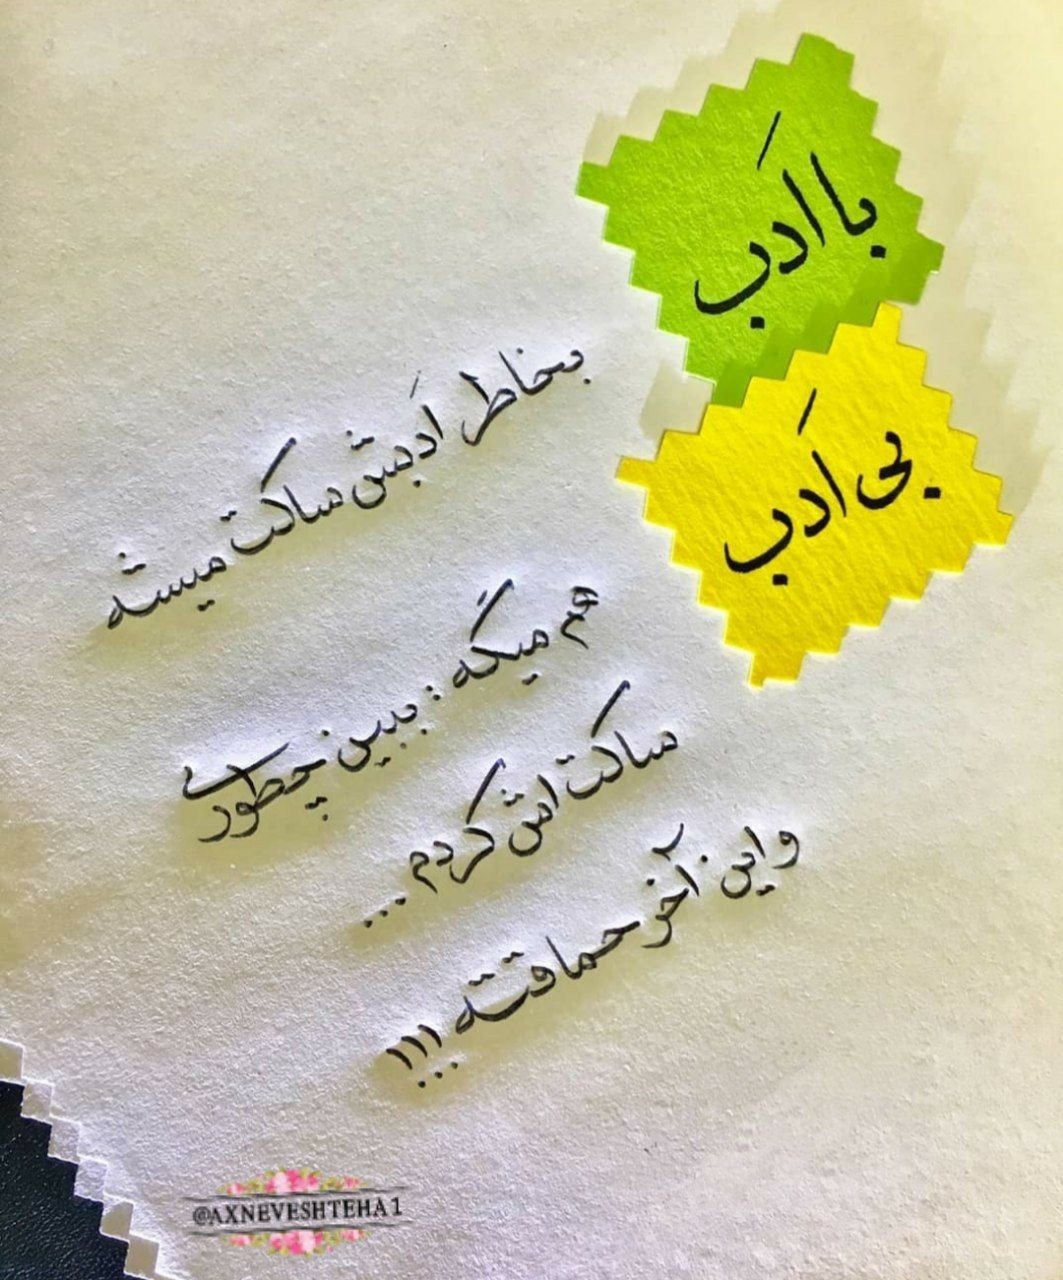 با اَدَب
بخاطر اَدبش ساکت میشه
بی اَدَب
هم میگه : ببین چطوری
ساکت اش کردم ...
و این آخر حماقته !!!
@AXNEVESHTEHA1